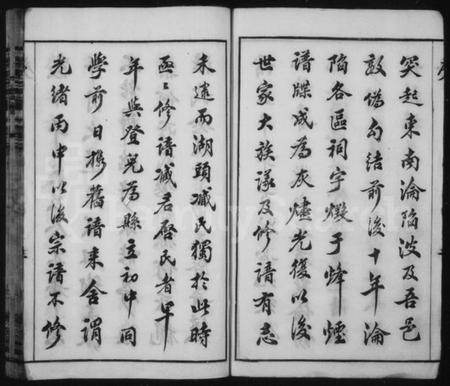 突起東南淪陷波及吾邑
敵偽勾結前後十年淪
陷各區祠宇燬于烽煙
譜牒成為灰燼光復以後
世家大族議及修譜有志
未逮而湖頭臧民獨於此時
亟亟修譜臧君啟民者早
年與登兒為縣立初中同
學前日攜舊譜來舍謂
光緒丙申以後宗譜不修